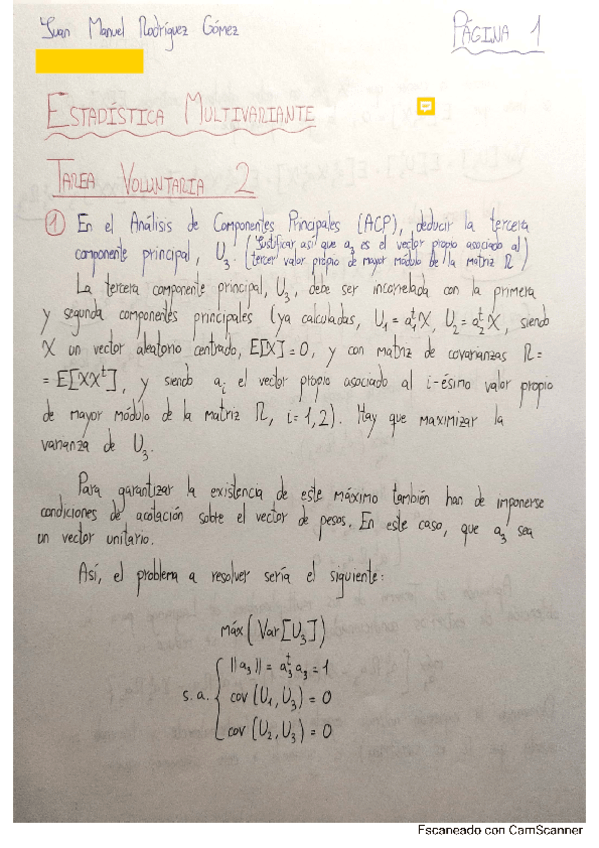 Juan Manuel Rodríguez Gómez
PÁGINA 1
ESTADÍSTICA MULTIVARIANTE
TAREA VOLUNTARIA 2
① En el Análisis de Componentes Principales (ACP), deducir la tercera
componente principal, U₃. (Justificar así que a₃ es el vector propio asociado al
tercer valor propio de mayor módulo de la matriz R)
La tercera componente principal, U₃, debe ser incorrelada con la primera
y segunda componentes principales (ya calculadas, U₁ = a₁ᵗX, U₂ = a₂ᵗX, siendo
X un vector aleatorio centrado, E[X] = 0, y con matriz de covarianzas R =
= E[XXᵗ], y siendo aᵢ el vector propio asociado al i-ésimo valor propio
de mayor módulo de la matriz R, i = 1, 2). Hay que maximizar la
varianza de U₃.
Para garantizar la existencia de este máximo también han de imponerse
condiciones de acotación sobre el vector de pesos. En este caso, que a₃ sea
un vector unitario.
Así, el problema a resolver sería el siguiente:
máx (Var[U₃])
||a₃|| = a₃ᵗ a₃ = 1
s.a. { cov (U₁, U₃) = 0
cov (U₂, U₃) = 0
Escaneado con CamScanner